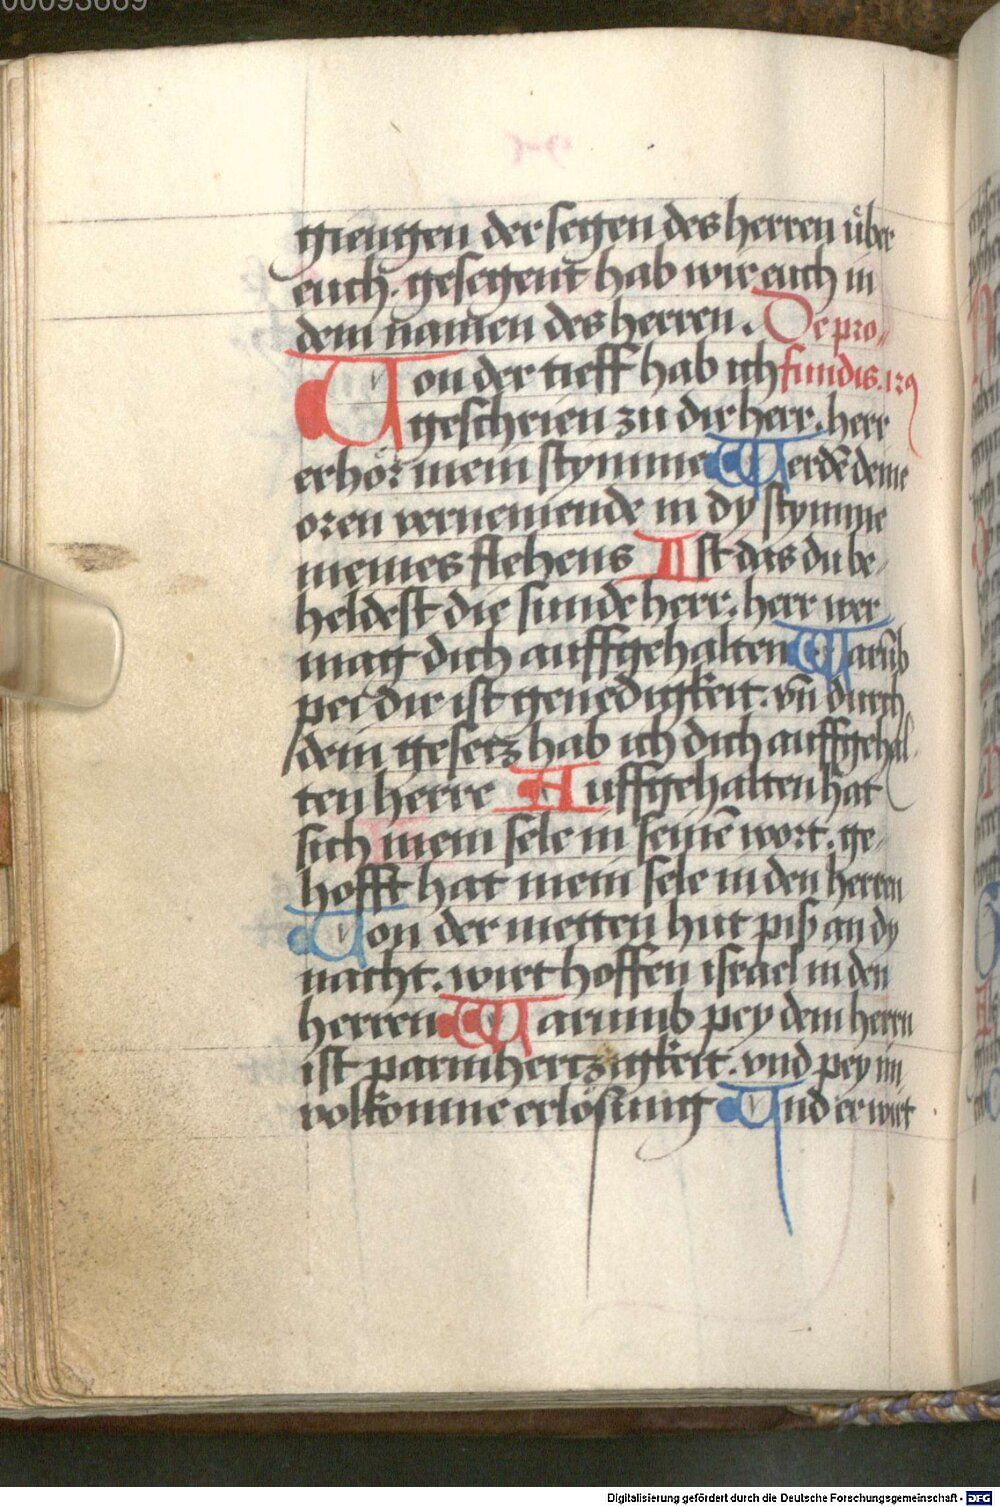 00093669
giengen der segen des herren über
euch. gesegent hab wir euch in
dem namen des herren. De pro-
Von der tieff hab ich fundis. 129
geschrien zu dir herr. herr
erhör mein stymme Werdē deine
oren vernemende in dy stymme
meines flehens Ist das du be-
heldest die sunde herr. herr wer
mag dich auffgehalten Warūb
pei dir ist genedigkeit. vn̄ durch
dein gesetz hab ich dich auffgehal-
ten herre Auffgehalten hat
sich mein sele in seinē wort. ge-
hofft hat mein sele in den herren
Von der metten hut piß an dy
nacht. wirt hoffen israel in den
herren Warumb pey dem herrn
ist parmhertzigkeit. vnd pey im
volkomne erlösung Vnd er wirt
Digitalisierung gefördert durch die Deutsche Forschungsgemeinschaft - DFG